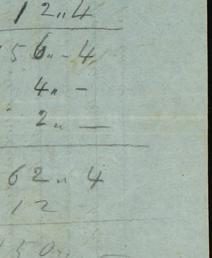 12 〃 4
156 〃 - 4
4 〃 -
2 〃 —
62 〃 4
12
150 〃 —